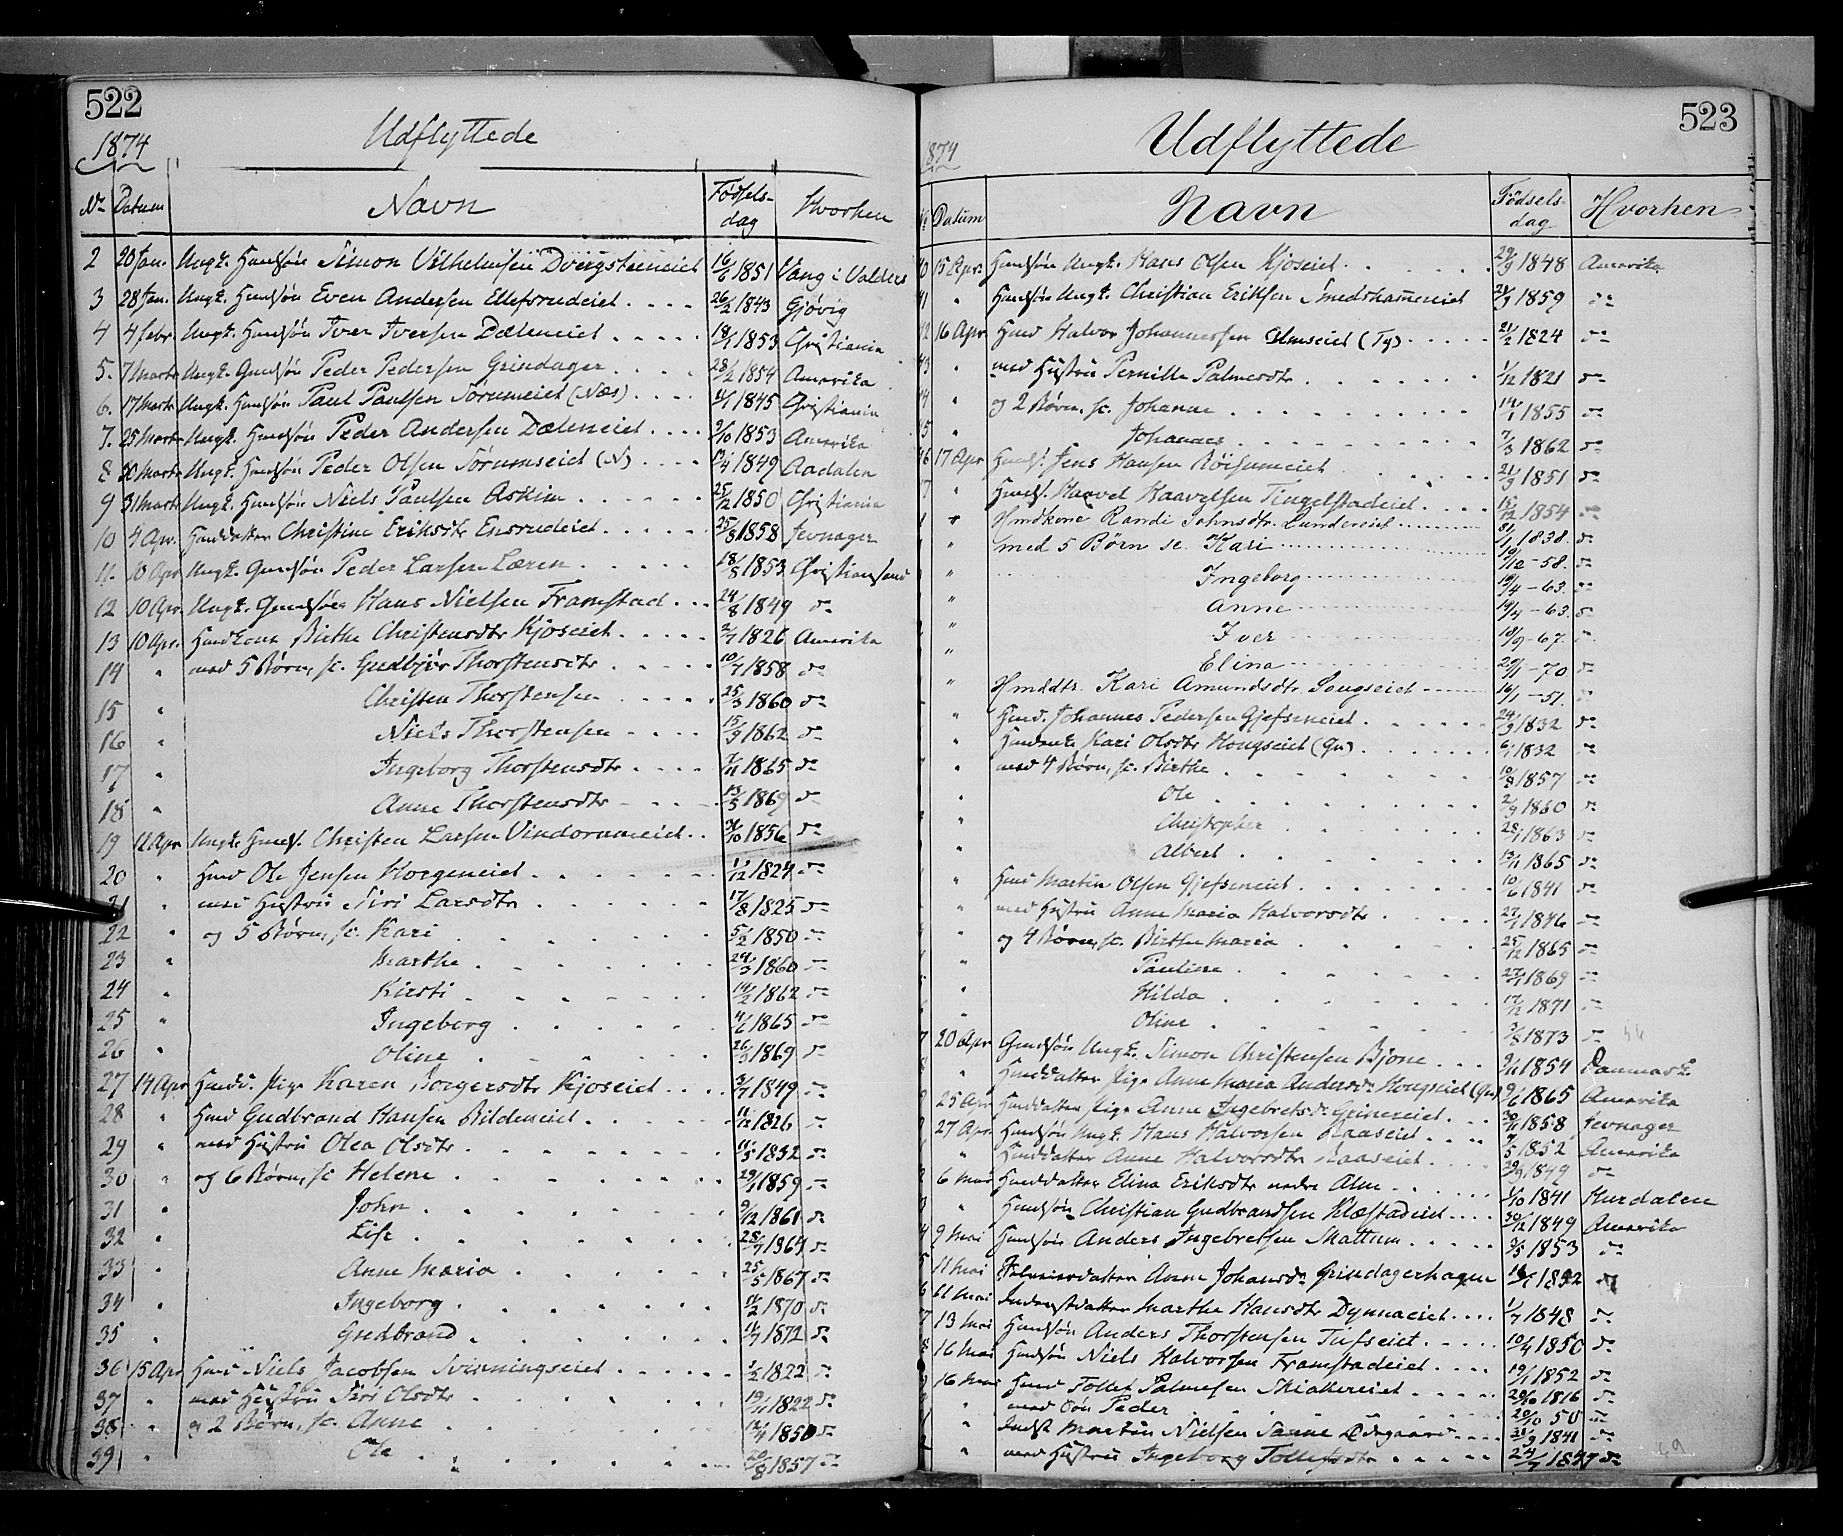 522
1874
Udflyttede
No Datum Navn Fødsels-dag Hvorhen
2 20 Jan. Ungk. Huussøn Simon Vilhelmsen Dvergsteneiet 16/6 1851 Vang i Valders
3 28 Jan. Ungk. Huussøn Even Andersen Ellefsrudeiet 26/2 1843 Gjøvig
4 4 Febr. Ungk. Huussøn Iver Iversen Dæleneiet 18/1 1853 Christiania
5. 7 Marts Ungk. Gmdsøn Peder Pedersen Grindager 28/2 1854 Amerika
6. 17 Marts Ungk. Huusøn Paul Paulsen Sørumeiet (Næs) 1845 Christiania
7. 25 Marts Ungk. Huusøn Peder Andersen Dæleneiet 2/10 1853 Amerika
8 30 Marts Ungk. Huusøn Peder Olsen Sørumseiet (N) 1849 Aadalen
9 31 Marts Ungk. Huusøn Niels Paulsen Askim 25/12 1850 Christiania
10 4 Apr. Huusdatter Christine Eriksdtr Ensrudeiet 25/8 1858 Jevnager
11. 10 Apr Ungk. Gmdsøn Peder Larsen Læren 18/8 1853 Christiansand
12 10 Apr. Ungk. Gmdsøn Hans Nielsen Framstad 24/8 1849 do
13 10 Apr. Huuskone Birthe Christensdtr Kjoseiet 2/7 1826 Amerika
14 " med 5 Børn, sc. Gudbjør Thorstensdtr 10/7 1858 do
15 " Christen Thorstensen 25/3 1860 do
16 " Niels Thorstensen 15/9 1862 do
17 " Ingeborg Thorstensdtr 1865 do
18 " Anne Thorstensdtr 13/5 1869 do
19 12 Apr Ungk. Huuss. Christen Larsen Vindorumeiet 31/10 1856 do
20 " Huusd Ole Jensen Horgeneiet 1/12 1824 do
21 " med Hustru Siri Larsdtr 17/8 1825 do
22 " og 5 Børn, sc. Kari 5/2 1850 do
23 " Marthe 24/3 1860 do
24 " Kirsti 14/2 1862 do
25 " Ingeborg 4/6 1865 do
26 " Oline 26/3 1869 do
27 14 Apr Huusd. Pige Karen Borgersdtr Kjoseiet 3/7 1849 do
28 " Huusd Gudbrand Hansen Bildeneiet 11/12 1826 do
29 " med Hustru Olea Olsdtr 11/5 1832 do
30 " og 6 Børn, sc Helene 29/1 1859 do
31 " John 9/12 1861 do
32 " Lise 28/7 1864 do
33 " Anne Maria 25/5 1867 do
34 " Ingeborg 11/2 1870 do
35 " Gudbrand 11/7 1872 do
36 15 Apr Huusd Niels Jacobsen Svinningseiet 1/2 1822 do
37 " med Hustru Siri Olsdtr 19/11 1822 do
38 " og 2 Børn, sc. Anne 12/4 1850 do
39 " Ole 20/8 1857 do
523
1874
Udflyttede
No Datum Navn Fødsels-dag Hvorhen
40 15 Apr. Huusøn Ungk. Hans Olsen Kjoseiet 29/9 1848 Amerika
41 " Huusøn Ungk. Christian Eriksen Smedshammereiet 24/9 1859 do
42 16 Apr Huusd Halvor Johannessen Almseiet (Ty) 21/2 1824 do
43 " med Hustru Pernille Palmesdtr 1/12 1821 do
44 " og 2 Børn, sc. Johanne 14/1 1855 do
45 " Johannes 7/3 1862 do
46 17 Apr Huuss. Jens Hansen Røisumeiet 21/9 1851 do
47 " Huuss. Haavel Haavelsen Tingelstadeiet 15/12 1854 do
" Hmdkone Randi Johnsdtr. Lundereiet 31/1 1838. do
" med 5 Børn sc. Kari /12 - 58. do
" Ingeborg 19/4 - 63. do
" Anne 19/4 - 63. do
" Iver 10/9 - 67. do
" Elina 29/1 - 70 do
" Hmddtr. Kari Amundsdtr. Sougseiet 16/1 - 51. do
" Huusd. Johannes Pedersen Gjefseneiet 24/9 1832 do
" Huusenke Kari Olsdtr Hougseiet (Gn) 6/1 1832 do
" med 4 Børn, sc. Birthe 10/8 1857 do
" Ole 2/9 1860 do
" Christopher 28/1 1863 do
" Albert 13/11 1865 do
" Huusd Martin Olsen Gjefseneiet 10/6 1841 do
" med Hustru Anne Maria Halvorsdtr 27/7 1846 do
" og 4 Børn, sc. Birthe Maria 25/12 1865 do
" Pauline 27/7 1869 do
" Hilda 17/12 1871 do
" Oline 3/8 1873 do
7 20 Apr Gmdsøn Ungk. Simon Christensen Bjone 9/11 1854 Danmark
8 " Huusdatter Pige Anne Maria Andersdr Hougseiet (Gn) 9/6 1865 Amerika
9 25 Apr Huusdatter Pige Anne Ingebretsdr Grinereiet 30/11 1858 Jevnager
27 Apr. Huusøn Ungk. Hans Halvorsen Raaseiet 7/5 1852 Amerika
" Huusdatter Anne Halvorsdtr Raaseiet 1849 do
2 6 Mai Huusdatter Elina Eriksdtr nedre Alm 1/10 1841 Hurdalen
3 " Huusøn Christian Gudbrandsen Klæstadeiet 30/12 1849 Amerika
4 9 Mai Huusøn Anders Ingebretsen Mattum 1853 do
5 11 Mai Anne Johansdr Grindagerhagen 1832 do
6 11 Mai Inderstdatter Marthe Hansdtr Dynnaeiet 1/7 1848 do
7 13 Mai Huusøn Anders Thorstensen Tufseiet 10/4 1850 do
8 16 Mai Huusøn Niels Halvorsen Framstadeiet 19/1 1852 do
9 16 Mai Huusd Tollef Palmesen Skiakereiet 29/10 1816 do
" med Søn Peder 20/10 50 do
" Indst Martin Nielsen Sanne Ødegaard 1841 do
" med Hustru Ingeborg Tollefsdtr 24/7 1847 do